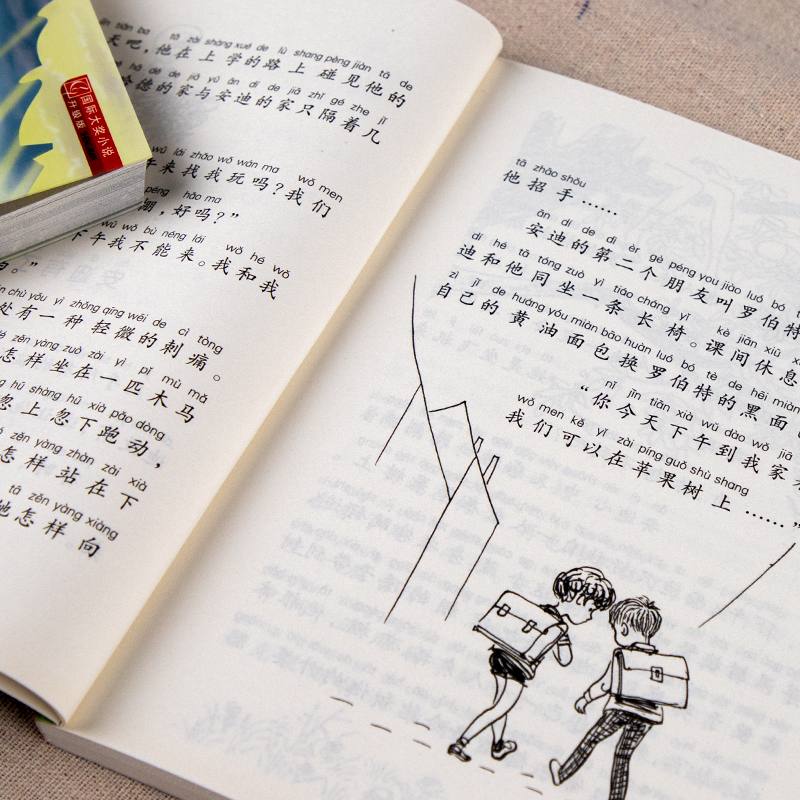 国际大奖小说
升级版
tiān ba tā zài shàng xué de lù shang pèng jiàn tā de
天吧，他在上学的路上碰见他的
dé de jiā yǔ ān dí de jiā zhǐ gé zhe jǐ
德的家与安迪的家只隔着几
lái zhǎo wǒ wán ma wǒ men
来找我玩吗？我们
péng hǎo ma
，好吗？”
wǔ wǒ bù néng lái wǒ hé wǒ
下午我不能来。我和我
。”
chù yǒu yì zhǒng qīng wēi de cì tòng
处有一种轻微的刺痛。
zěn yàng zuò zài yì pǐ mù mǎ
怎样坐在一匹木马
hū shàng hū xià pǎo dòng
忽上忽下跑动，
zěn yàng zhàn zài xià
怎样站在下
tā zěn yàng xiàng
她怎样向
tā zhāo shǒu
他招手……
ān dí de dì èr gè péng you jiào luó bó
安迪的第二个朋友叫罗伯特
dí hé tā tóng zuò yì tiáo cháng yǐ kè jiān xiū
迪和他同坐一条长椅。课间休息
zì jǐ de huáng yóu miàn bāo huàn luó bó tè de hēi miàn
自己的黄油面包换罗伯特的黑面
nǐ jīn tiān xià wǔ dào wǒ jiā
“你今天下午到我家
wǒ men kě yǐ zài píng guǒ shù shang
我们可以在苹果树上……”